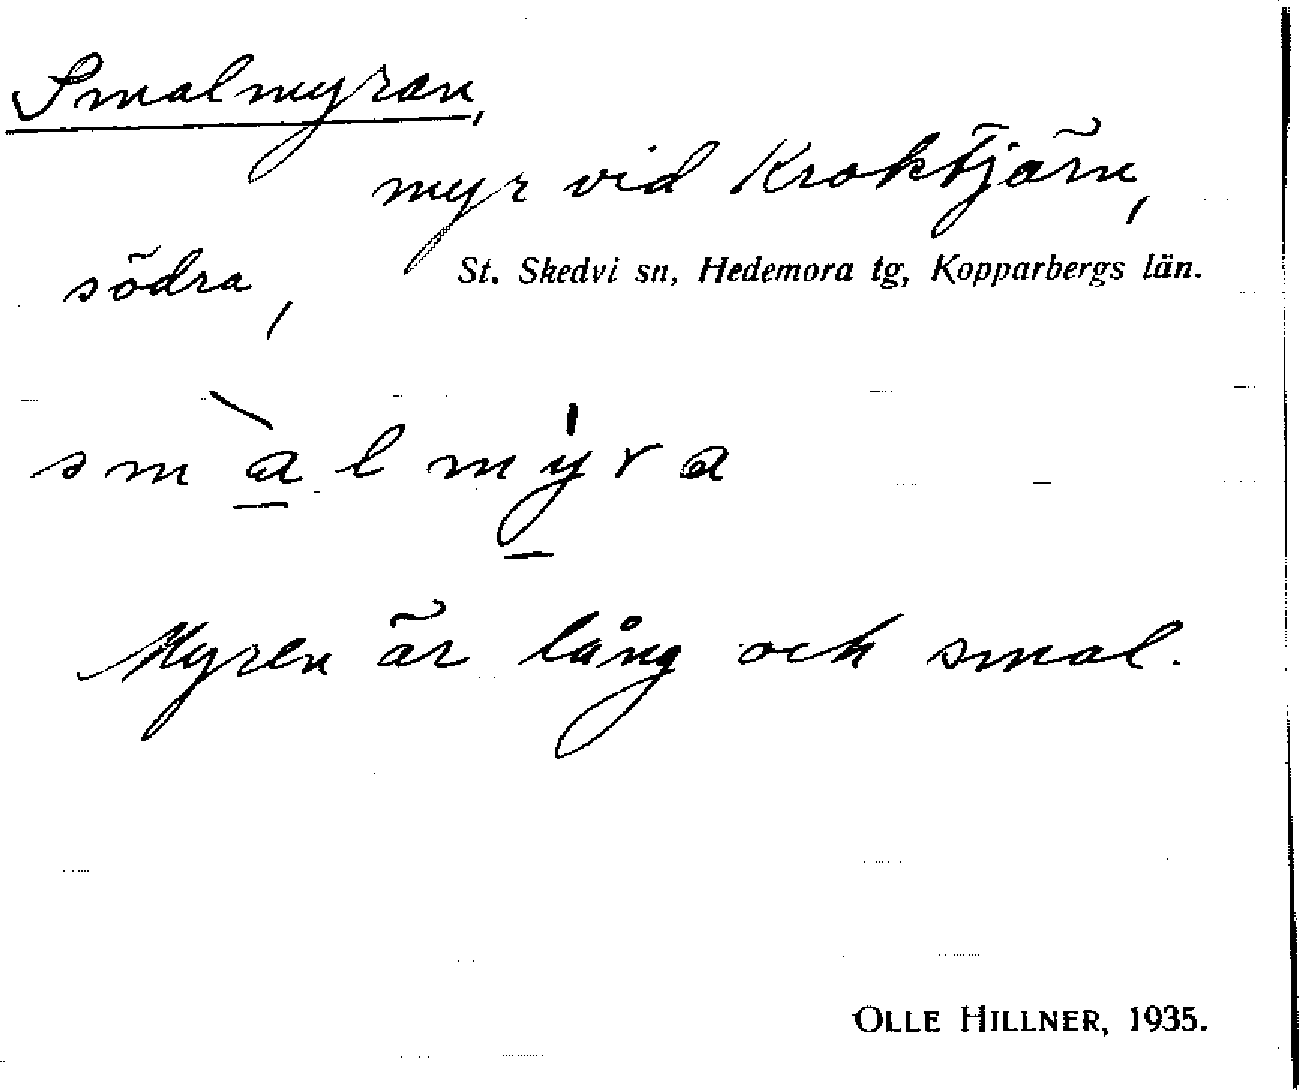 Smalmyran,
myr vid Kroktjärn,
södra,
St. Skedvi sn, Hedemora tg, Kopparbergs län.
smàlmýra
Myren är lång och smal.
OLLE HILLNER, 1935.